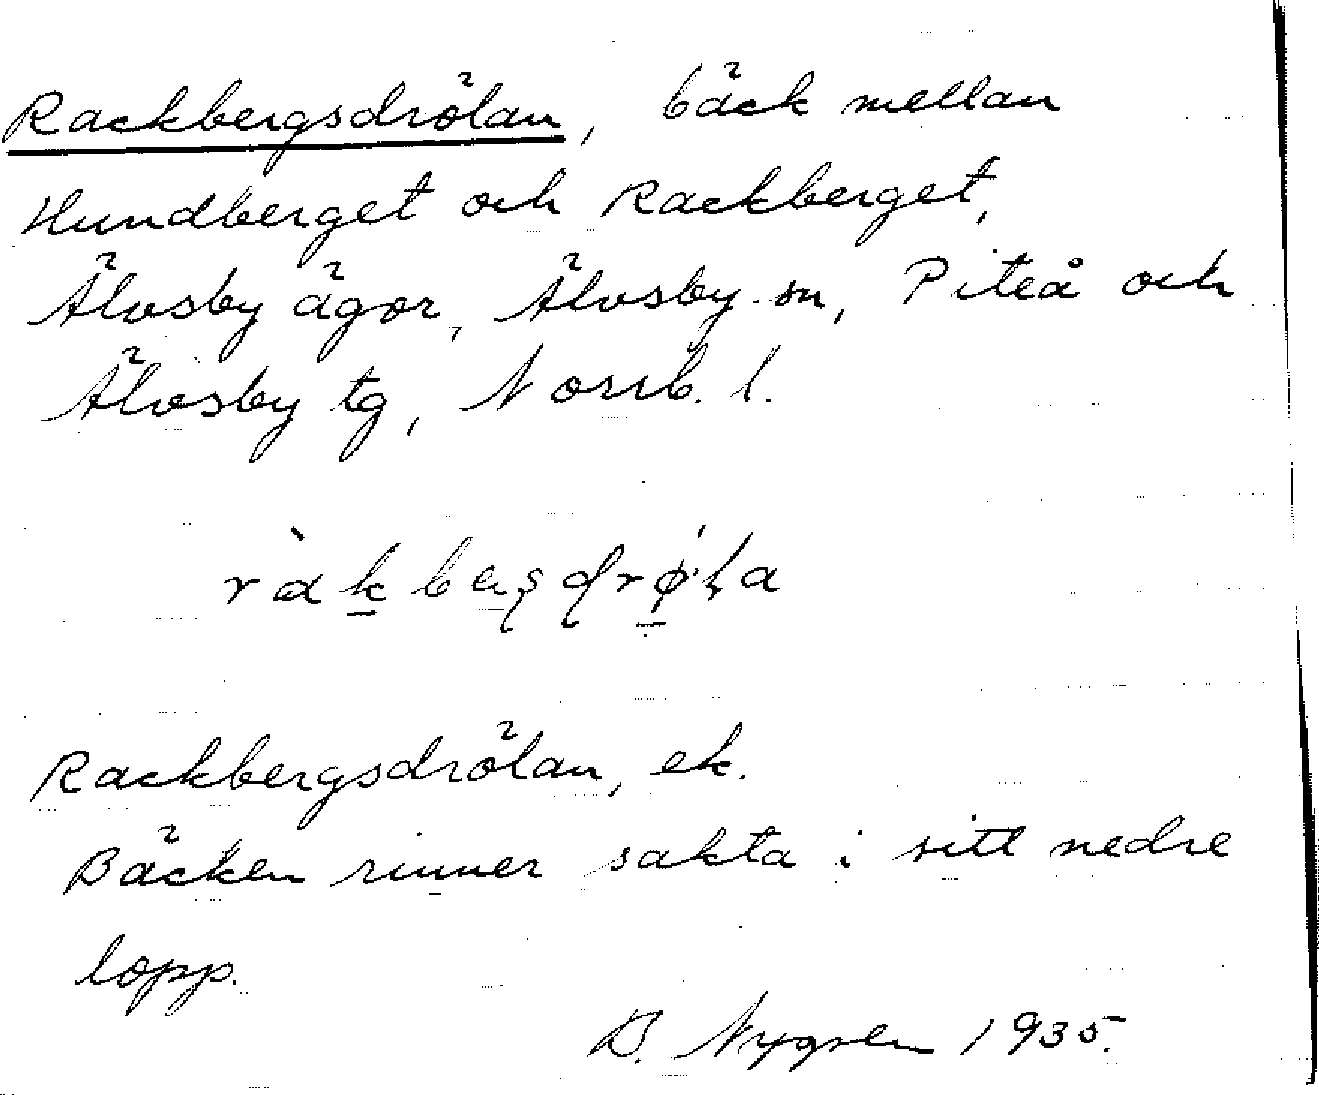 Rackbergsdrölan, bäck mellan
Hundberget och Rackberget,
Älvsby ägor, Älvsby sn, Piteå och
Älvsby tg, Norrb. l.
Rackbergsdrölan, ek.
Bäcken rinner sakta i sitt nedre
lopp.
B. Nygren 1935.